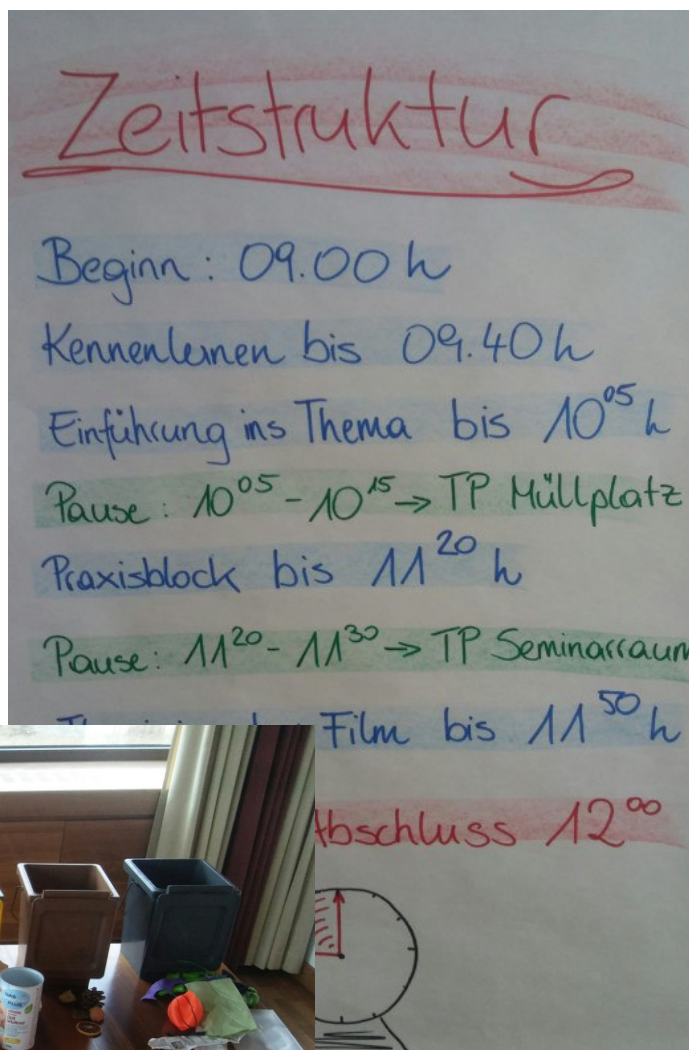 Zeitstruktur
Beginn: 09.00 h
Kennenlernen bis 09.40 h
Einführung ins Thema bis 10⁰⁵ h
Pause: 10⁰⁵ - 10¹⁵ → TP Müllplatz
Praxisblock bis 11²⁰ h
Pause: 11²⁰ - 11³⁰ → TP Seminarraum
Film bis 11⁵⁰ h
Abschluss 12⁰⁰